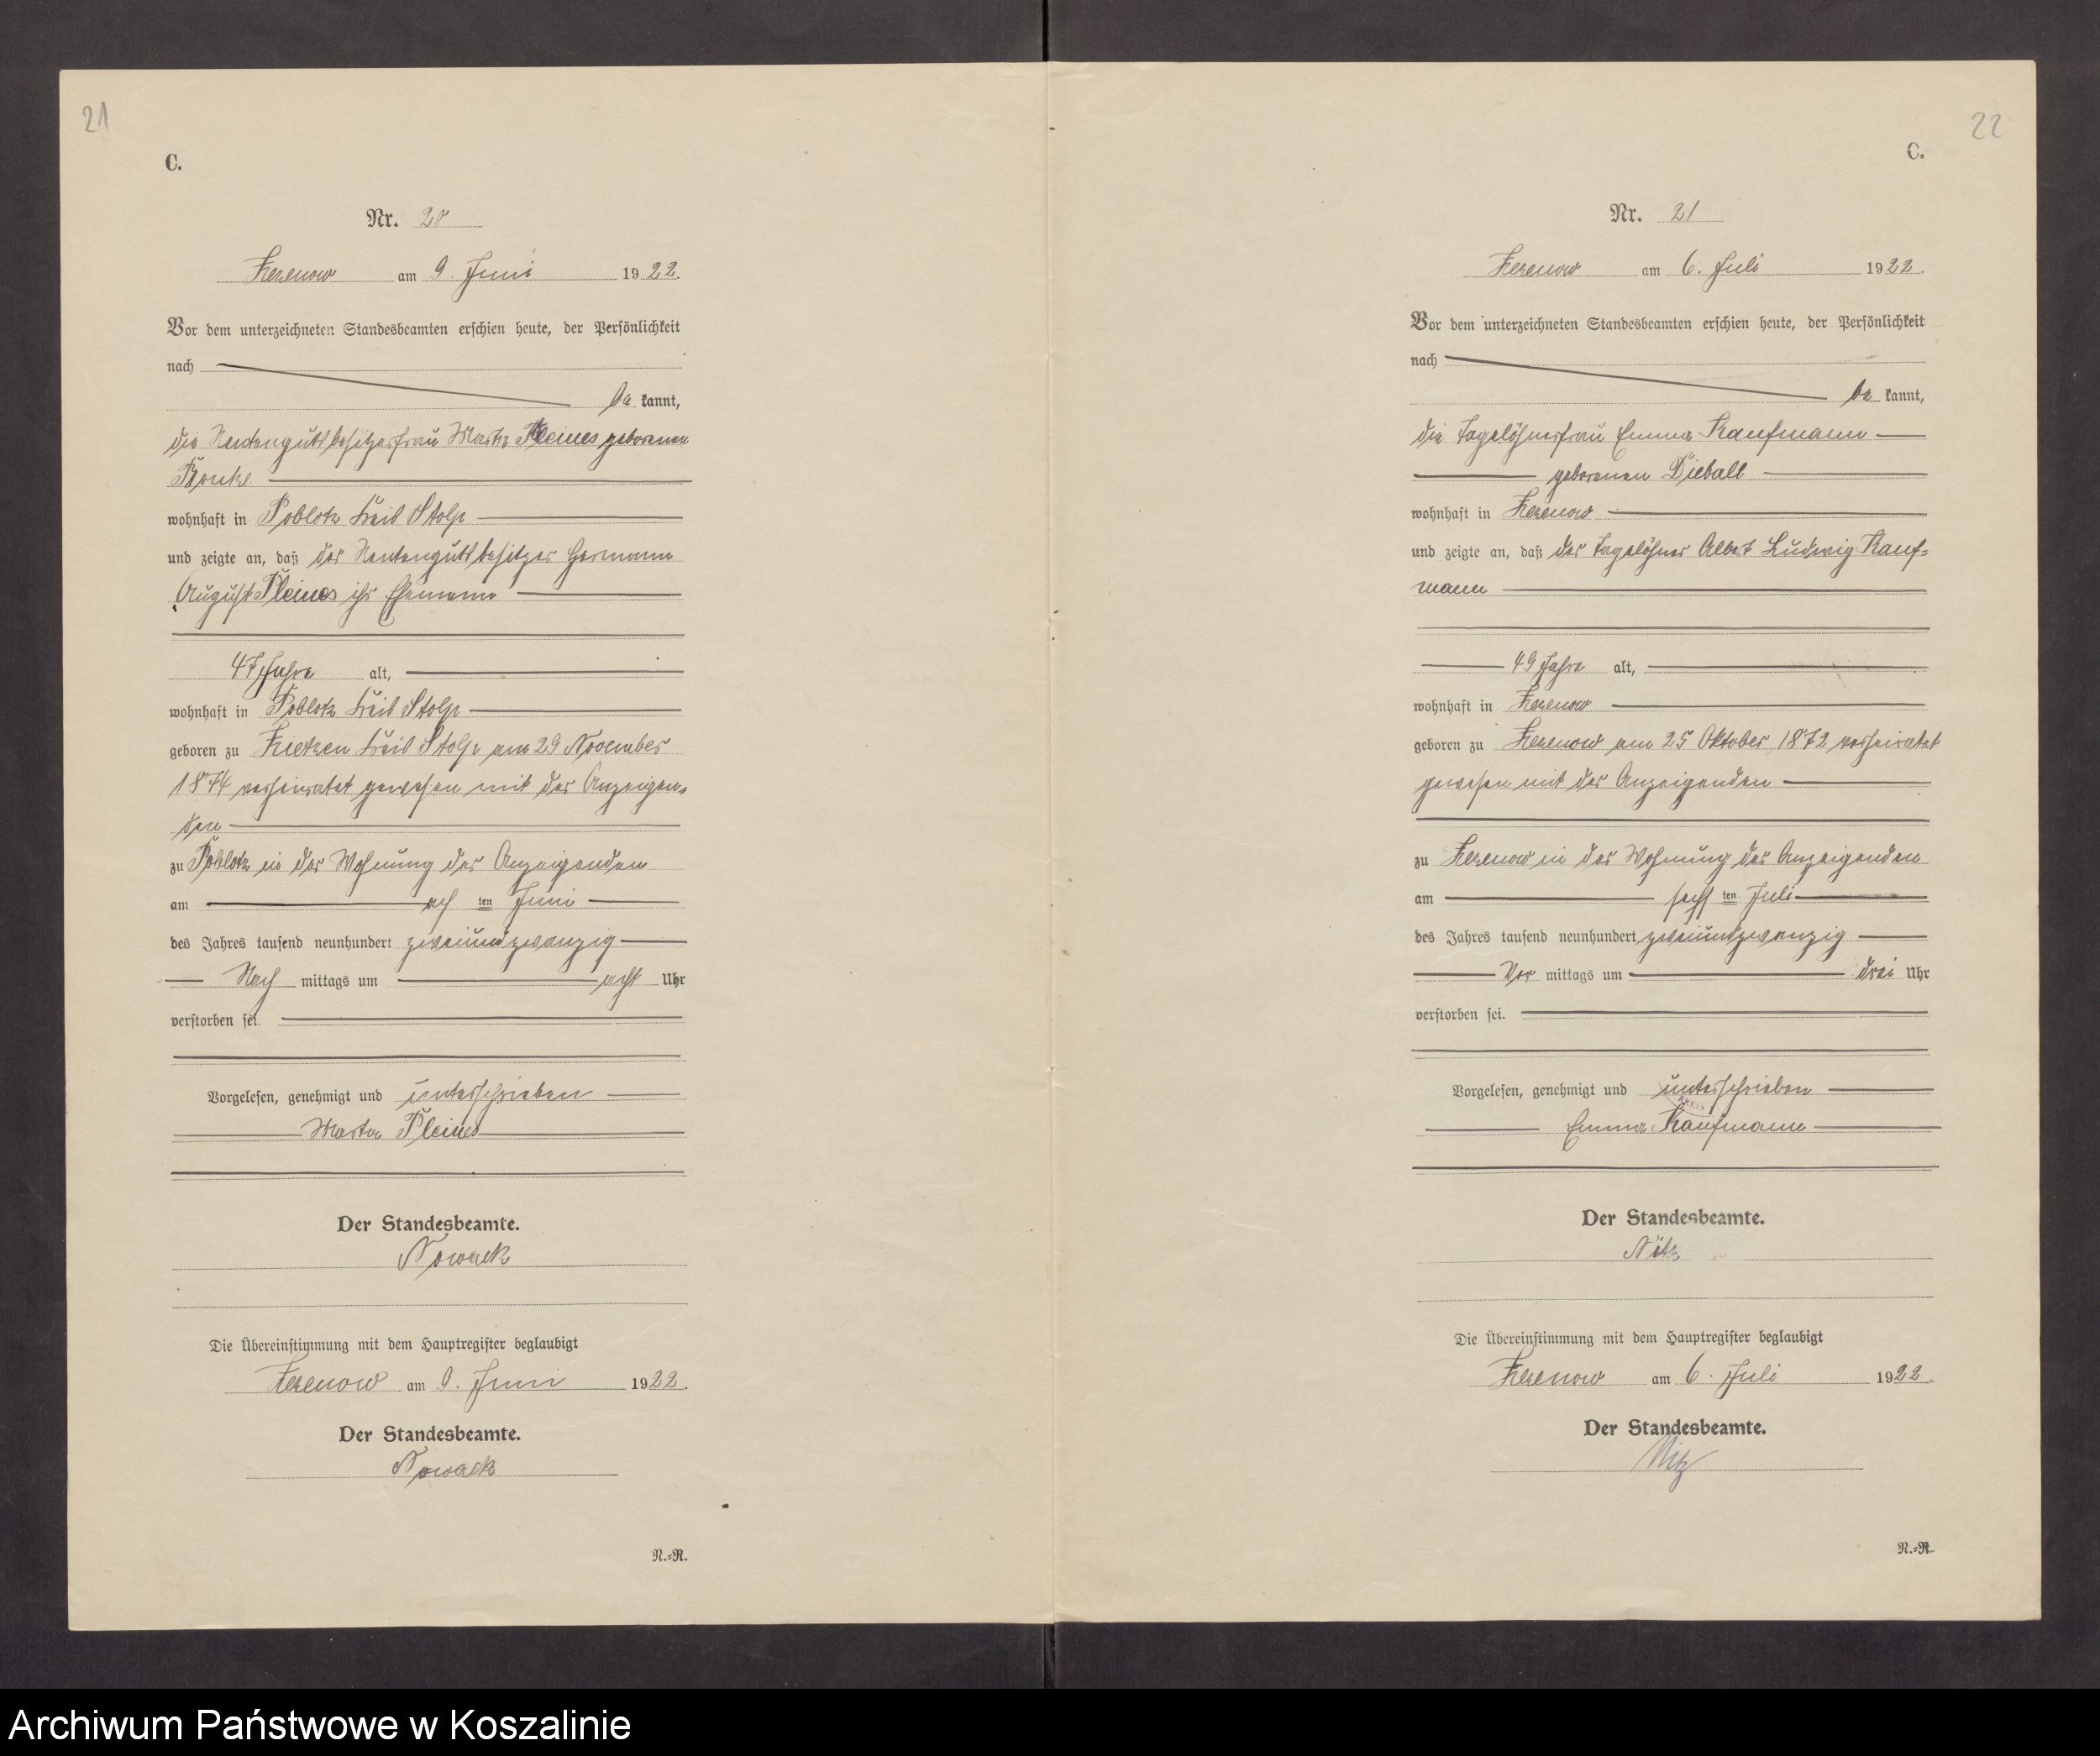 21
C.
Nr. 20
Zezenow am 9. Juni 1922.
Vor dem unterzeichneten Standesbeamten erschien heute, der Persönlichkeit
nach
be kannt,
die Rentengutsbesitzerfrau Marta Pleines geborenen
wohnhaft in Poblotz Kreis Stolp
und zeigte an, daß der Rentengutsbesitzer Hermann
August Pleines ihr Ehemann
47 Jahre alt,
wohnhaft in Poblotz Kreis Stolp
geboren zu Zietzen Kreis Stolp am 29 November
1874 verheiratet gewesen mit der Anzeigen-
den
zu Poblotz in der Wohnung der Anzeigenden
am ach ten Juni
des Jahres tausend neunhundert zweiundzwanzig
Nach mittags um acht Uhr
verstorben sei.
Vorgelesen, genehmigt und unterschrieben
Marta Pleines
Der Standesbeamte.
Nowack
Die Übereinstimmung mit dem Hauptregister beglaubigt
Zezenow am 9. Juni 1922.
Der Standesbeamte.
Nowack
N.=R.
22
C.
Nr. 21
Zezenow am 6. Juli 1922.
Vor dem unterzeichneten Standesbeamten erschien heute, der Persönlichkeit
nach
be kannt,
die Tagelöhnerfrau Emma Kaufmann
geborenen Dieball
wohnhaft in Zezenow
und zeigte an, daß der Tagelöhner Albert Ludwig Kauf=
mann
49 Jahre alt,
wohnhaft in Zezenow
geboren zu Zezenow am 25 Oktober 1872 verheiratet
gewesen mit der Anzeigenden
zu Zezenow in der Wohnung der Anzeigenden
am sechs ten Juli
des Jahres tausend neunhundert zweiundzwanzig
Vor mittags um drei Uhr
verstorben sei.
Vorgelesen, genehmigt und unterschrieben
Emma Kaufmann
Der Standesbeamte.
Die Übereinstimmung mit dem Hauptregister beglaubigt
Zezenow am 6. Juli 1922.
Der Standesbeamte.
Nitz
N.=R.
Archiwum Państwowe w Koszalinie